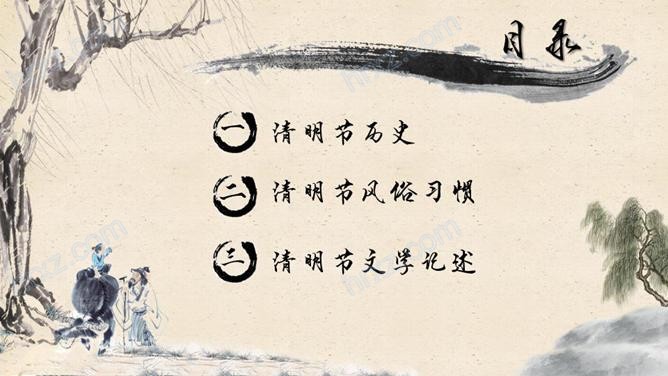 目录
一 清明节历史
二 清明节风俗习惯
三 清明节文学记述